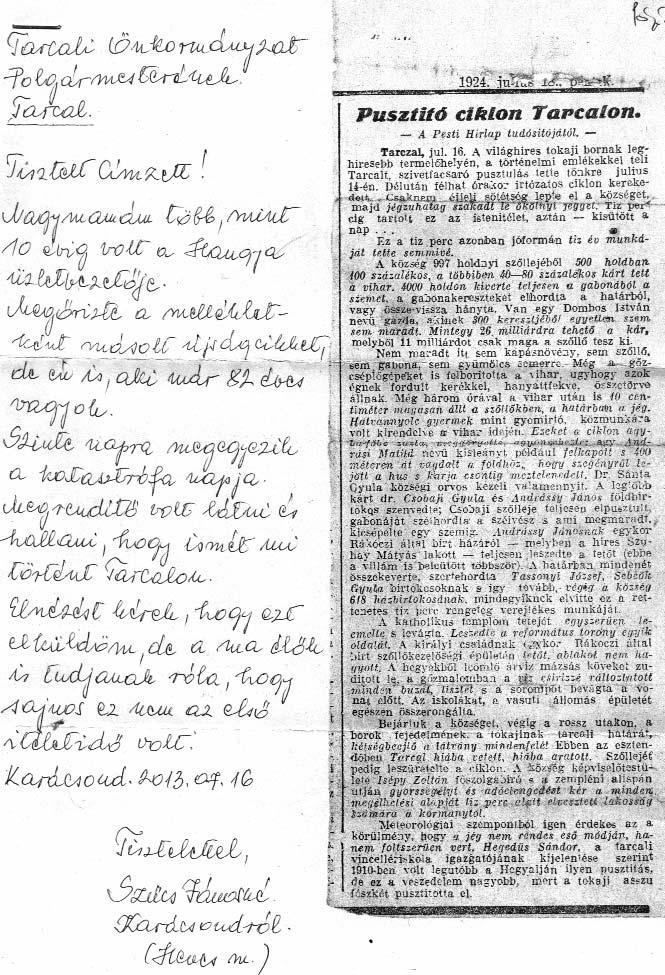 Tarcali Önkormányzat
Polgármesterének
Tarcal.
Tisztelt Címzett!
Nagymamám több, mint
10 évig volt a Hangya
üzletvezetője.
Megőrizte a melléklet-
ként másolt újságcikket,
de én is, aki már 82 éves
vagyok.
Szinte napra megegyezik
a katasztrófa napja.
Megrendítő volt látni és
hallani, hogy ismét mi
történt Tarcalon.
Elnézést kérek, hogy ezt
elküldöm, de a ma élők
is tudjanak róla, hogy
sajnos ez nem az első
ítéletidő volt.
Karácsond. 2013.07.16
Tisztelettel,
Szűcs Jánosné
Karácsondról.
(Heves m.)
1924. julius
Pusztitó ciklon Tarcalon.
— A Pesti Hirlap tudósitójától. —
Tarczal, jul. 16. A világhires tokaji bornak leg-
hiresebb termelőhelyén, a történelmi emlékekkel teli
Tarcalt, szivetfacsaró pusztulás tette tönkre julius
14-én. Délután félhat órakor irtózatos ciklon kereke-
dett. Csaknem éjjeli sötétség lepte el a községet,
majd jégzuhatag szakadt le ökölnyi jéggel. Tiz per-
cig tartott ez az istenitélet, aztán — kisütött a
nap . . .
Ez a tiz perc azonban jóformán tiz év munká-
ját tette semmivé.
A község 997 holdnyi szőllejéből 500 holdban
100 százalékos, a többiben 40—80 százalékos kárt tett
a vihar. 4000 holdon kiverte teljesen a gabonából a
szemet, a gabonakereszteket elhordta a határból,
vagy össze-vissza hányta. Van egy Dombos István
nevü gazda, akinek 300 keresztjéből egyetlen szem
sem maradt. Mintegy 26 milliárdra tehető a kár,
melyből 11 milliárdot csak maga a szőllő tesz ki.
Nem maradt itt sem kapásnövény, sem szőllő,
sem gabona, sem gyümölcs semerre. Még a gőz-
cséplőgépeket is felboritotta a vihar, ugyhogy azok
égnek fordult kerékkel, hanyattfekve, összetörve
állnak. Még három órával a vihar után is 10 cen-
timéter magasan állt a szőllőkben, a határban a jég.
Hatvannyolc gyermek mint gyomirtó, közmunkára
volt kirendelve a vihar idején. Ezeket a ciklon
egy And-
rási Matild nevü kisleányt például felkapott s 400
méteren át vagdalt a földhöz, hogy szegényről le-
jött a hus s karja csontig meztelenedett. Dr. Sánta
Gyula községi orvos kezeli valamennyit. A legtöbb
kárt dr. Csobaji Gyula és Andrássy János földbir-
tokos szenvedte; Csobaji szőlleje teljesen elpusztult,
gabonáját széthordta a szélvész s ami megmaradt,
kicsépelte egy szemig. Andrássy Jánosnak egykor
Rákóczi által birt házáról — melyben a hires Szu-
hay Mátyás lakott — teljesen leszedte a tetőt (ebbe
a villám is beleütött többször). A határban mindenét
összekeverte, szerteh­ordta Tassonyi József, Sebeők
Gyula birtokosoknak s igy tovább, végig a község
618 házbirtokosának, mindegyiknek elvitte ez a ret-
tenetes tiz perc rengeteg verejtékes munkáját.
A katholikus templom tetejét egyszerüen le-
emelte s levágta. Leszedte a református torony egyik
oldalát. A királyi családnak egykor Rákóczi által
birt szőllőkezelőségi épületén tetőt, ablakot nem ha-
gyott. A hegyekből leömlő árviz mázsás köveket zu-
ditott le, a gőzmalomban a viz csirizzé változtatott
minden buzát, lisztet s a sorompót bevágta a vo-
nat előtt. Az iskolákat, a vasuti állomás épületét
egészen összerongálta.
Bejártuk a községet, végig a rossz utakon, a
borok fejedelmének, a tokajinak tarcali határát,
kétségbeejtő a látvány mindenfelé! Ebben az eszten-
dőben Tarcal hiába vetett, hiába aratott. Szőllejét
pedig leszüretelte a ciklon. A község képviselőtestü-
lete Isépy Zoltán főszolgabiró s a zempléni alispán
utján gyorssegélyt és adóelengedést kér a minden
megélhetési alapját tiz perc alatt elvesztett lakosság
számára a kormánytól.
Meteorológiai szempontból igen érdekes az a
körülmény, hogy a jég nem rendes eső módján, ha-
nem foltszerüen vert, Hegedüs Sándor, a tarcali
vincelleriskola igazgatójának kijelentése szerint
1910-ben volt legutóbb a Hegyalján ilyen pusztitás,
de ez a veszedelem nagyobb, mert a tokaji asszu
fészkét pusztitotta el.